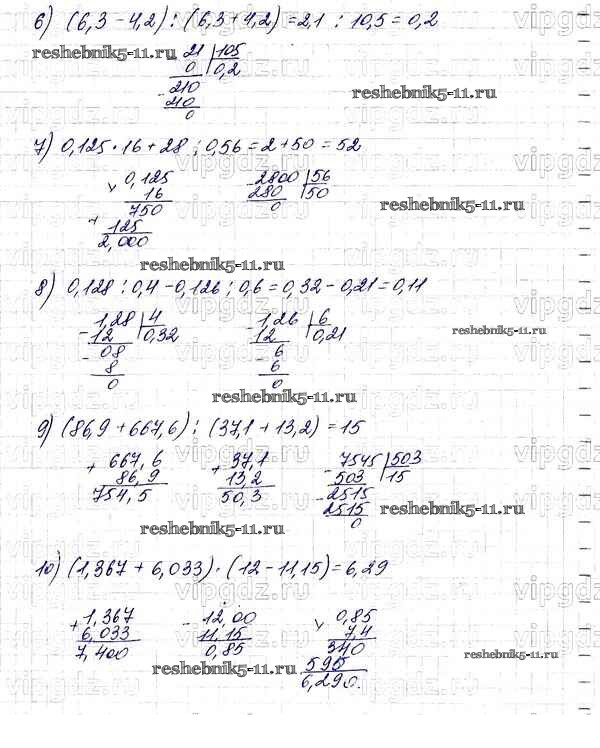 6) (6,3 - 4,2) : (6,3 + 4,2) = 2,1 : 10,5 = 0,2
reshebnik5-11.ru
21 | 105
0 | 0,2
210
- 210
0
reshebnik5-11.ru
7) 0,125 · 16 + 28 : 0,56 = 2 + 50 = 52
× 0,125
16
750
+ 125
2,000
- 2800 | 56
280 | 50
0
reshebnik5-11.ru
reshebnik5-11.ru
8) 0,128 : 0,4 - 0,126 : 0,6 = 0,32 - 0,21 = 0,11
- 1,28 | 4
12 | 0,32
- 08
8
0
- 1,26 | 6
12 | 0,21
- 6
6
0
reshebnik5-11.ru
reshebnik5-11.ru
9) (86,9 + 667,6) : (37,1 + 13,2) = 15
+ 667,6
86,9
754,5
+ 37,1
13,2
50,3
- 7545 | 503
503 | 15
- 2515
2515
0
reshebnik5-11.ru
reshebnik5-11.ru
10) (1,367 + 6,033) · (12 - 11,15) = 6,29
+ 1,367
6,033
7,400
- 12,00
11,15
0,85
× 0,85
7,4
340
595
6,290.
reshebnik5-11.ru
reshebnik5-11.ru